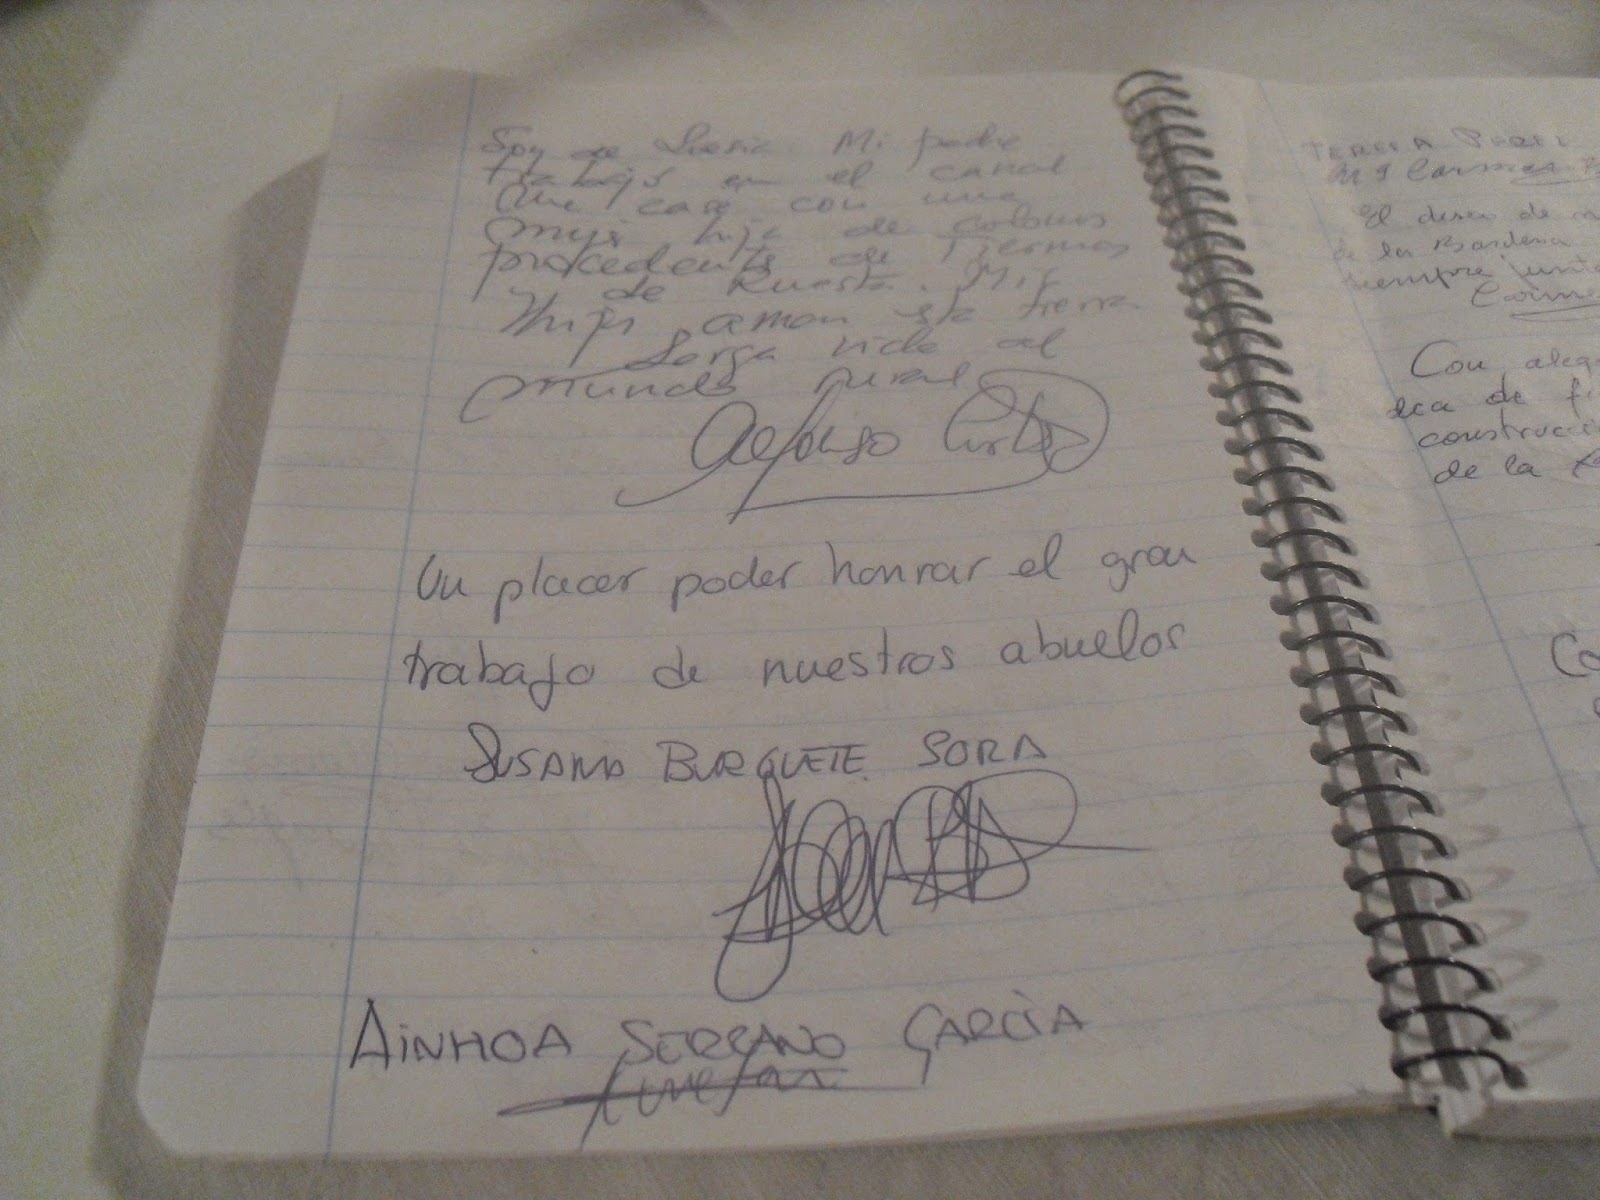 Soy de Luesia. Mi padre
trabajó en el canal
Me case con una
mujer hija de colonos
procedente de Tiermas
de Ruesta. Mis
hijos aman esta tierra
Larga vida al
mundo rural
Alfonso
Un placer poder honrar el gran
trabajo de nuestros abuelos
SUSANA BURGUETE SORA
AINHOA SERRANO GARCÌA
TERESA PEREZ
Mª Carmen
El deseo de
de la Bardena
siempre
Carme
Con aleg
de fi
construcci
de la
Co